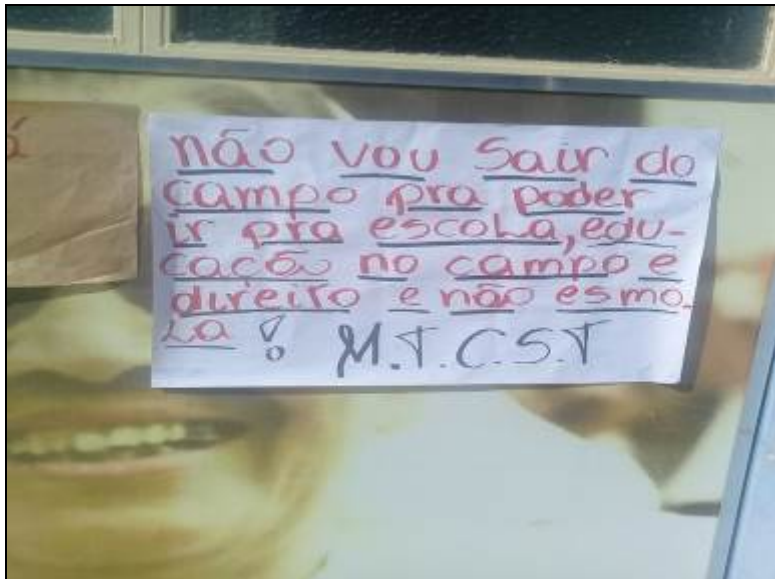 á
não vou Sair do
campo pra poder
ir pra escola, edu-
cacão no campo e
direito e não esmo-
la !
M.T.C.S.T